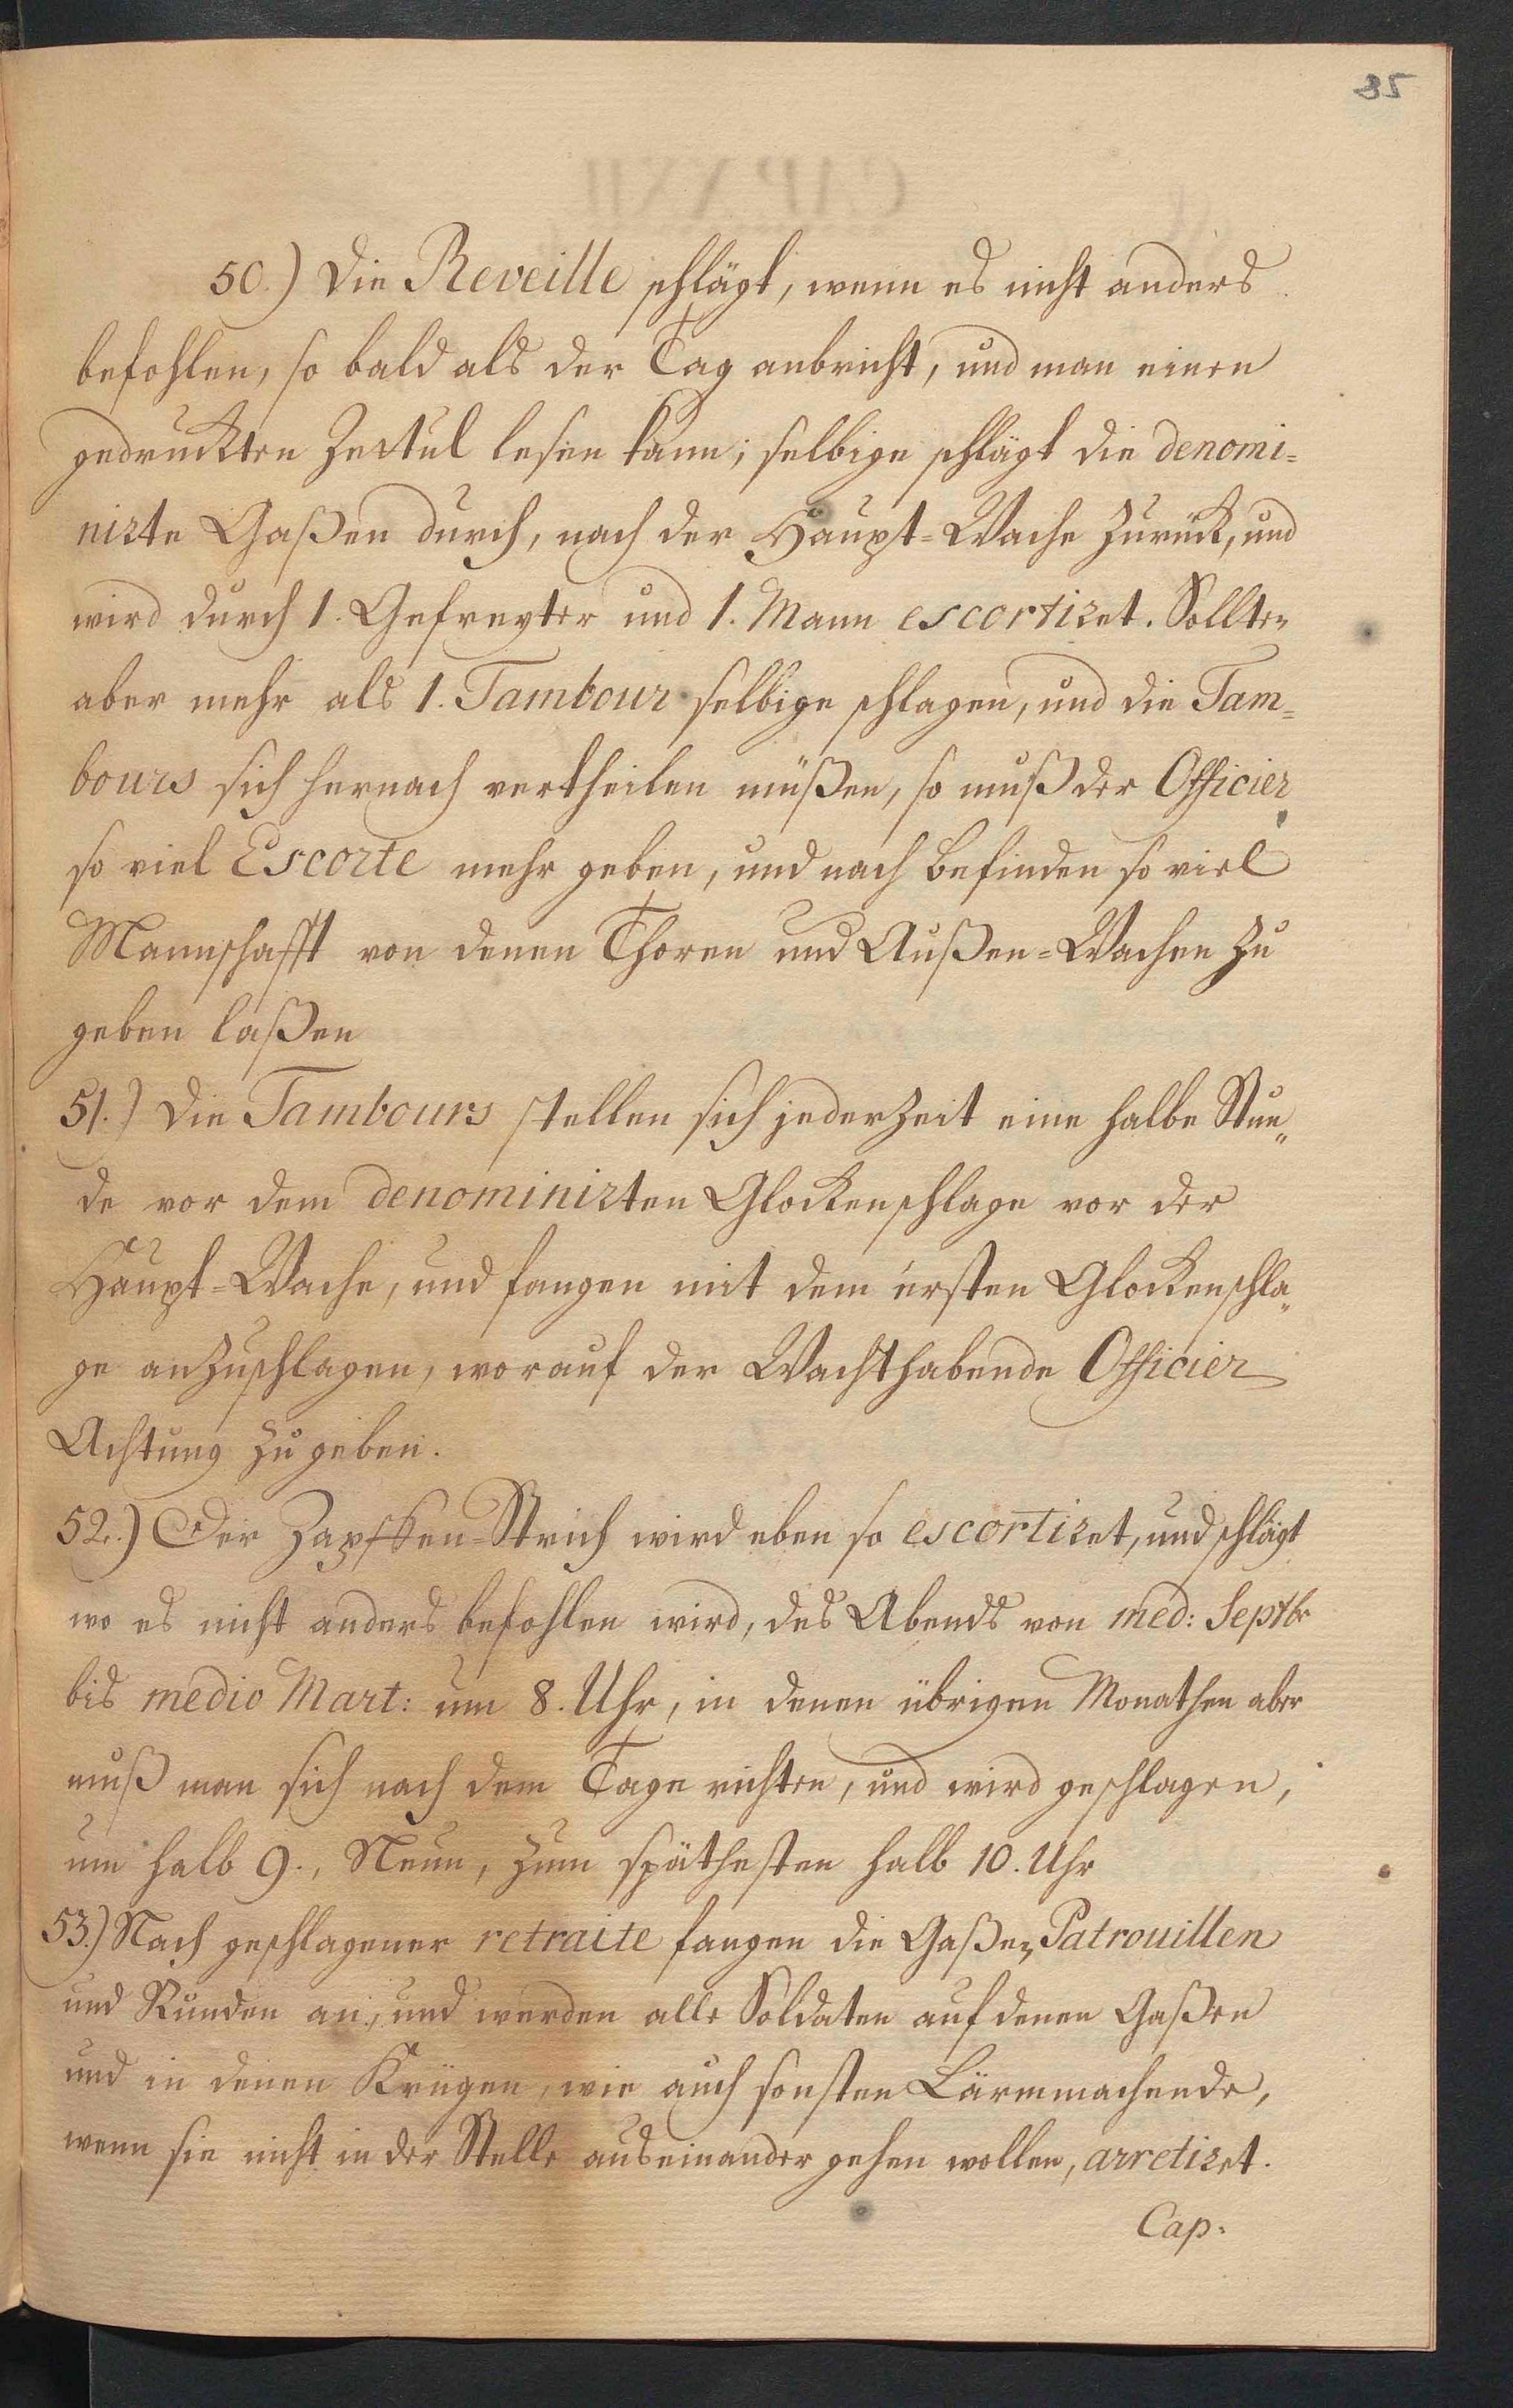 85
50.) Die Reveille schlägt, wenn es nicht anders
befohlen, so bald als der Tag anbricht, und man einen
gedruckten Zettul lesen kann; selbige schlägt die denomi=
nirte Gaßen durch, nach der Haupt=Wache zurück, und
wird durch 1. Gefreyter und 1. Mann escortiret. Sollten
aber mehr als 1. Tambour selbige schlagen, und die Tam=
bours sich hernach vertheilen müßen, so muß der Officier
so viel Escorte mehr geben, und nach Befinden so viel
Mannschafft von denen Thoren und Außen=Wachen zu
geben laßen
51.) Die Tambours stellen sich jederzeit eine halbe Stun„
de vor dem denominirten Glockenschlage vor der
Haupt=Wache, und fangen mit dem ersten Glockenschla„
ge anzuschlagen, worauf der Wachthabende Officier
Achtung zu geben.
52.) Der Zapffen=Strich wird eben so escortiret, und schlägt
wo es nicht anders befohlen wird, des Abends von med: Septbr
bis medio Mart: um 8. Uhr, in denen übrigen Monathen aber
muß man sich nach dem Tage richten, und wird geschlagen,
um halb 9., Neun, zum späthesten halb 10. Uhr
53.) Nach geschlagener retraite fangen die Gaßen Patrouillen
und Runden an, und werden alle Soldaten auf denen Gaßen
und in denen Krügen, wie auch sonsten Lärmmachende,
wenn sie nicht in der Stelle auseinander gehen wollen, arretiret.
Cap.